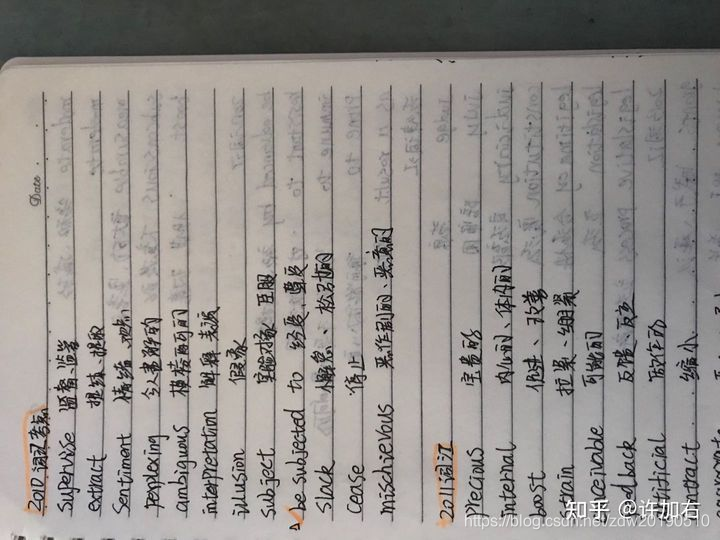 Date
2010词汇考点
supervise 监督、监管
extract 提炼、提取
sentiment 情绪、观点
perplexing 令人费解的
ambiguous 模棱两可的
interpretation 解释、表演
illusion 假象
subject 实验对象 臣服
be subjected to 经受、遭受
slack 懈怠、松弛的
cease 停止
mischievous 恶作剧的、恶意的
2011词汇
precious 宝贵的
internal 内心的、体内的
boost 促进、改善
strain 拉紧、绷紧
conceivable 可能的
feedback 反馈、反应
artificial 做作的
contract 缩小
知乎 @许加右
https://blog.csdn.net/zdw20190510